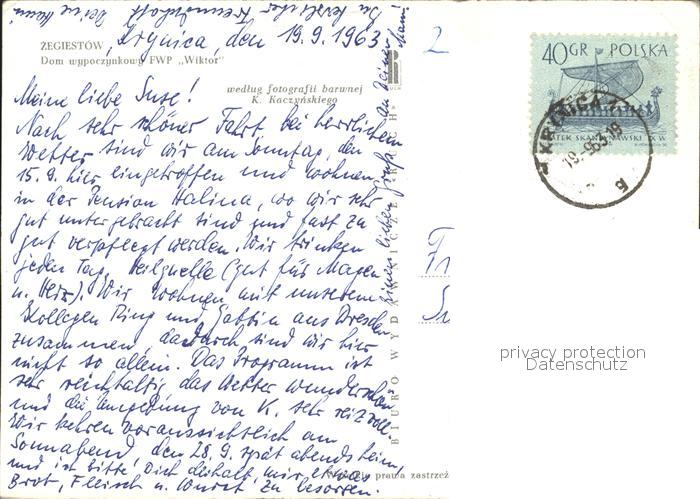 ŻEGIESTÓW
Dom wypoczynkowy FWP „Wiktor"
według fotografii barwnej
K. Kaczyńskiego
Krynica, den 19.9.1963
Meine liebe Suse!
Nach sehr schöner Fahrt, bei herrlichem
Wetter sind wir am Sonntag, den
15.9. hier eingetroffen und wohnen
in der Pension Halina, wo wir sehr
gut untergebracht sind und fast zu
gut verpflegt werden. Wir trinken
jeden Tag Heilquelle (gut für Magen
u. Herz). Wir wohnen mit unserem
Kollegen Ring und Gattin aus Dresden
zusammen, dadurch sind wir hier
nicht so allein. Das Programm ist
sehr reichhaltig, das Wetter wunderschön
und die Umgebung von K. sehr reizvoll.
Wir kehren voraussichtlich am
Sonnabend, den 28.9. spät abends heim,
und ich bitte Dich deshalb, mir etwas
Brot, Fleisch u. Wurst zu besorgen.
Einen lieben Gruß an Deinen
Mann!
In herzlicher Freundschaft Deine
BIURO WYDAWNICZE RUCH
prawa zastrzeż
2
Fr
40 GR POLSKA
KRYNICA
19.-9.63.-19
Б
privacy protection
Datenschutz